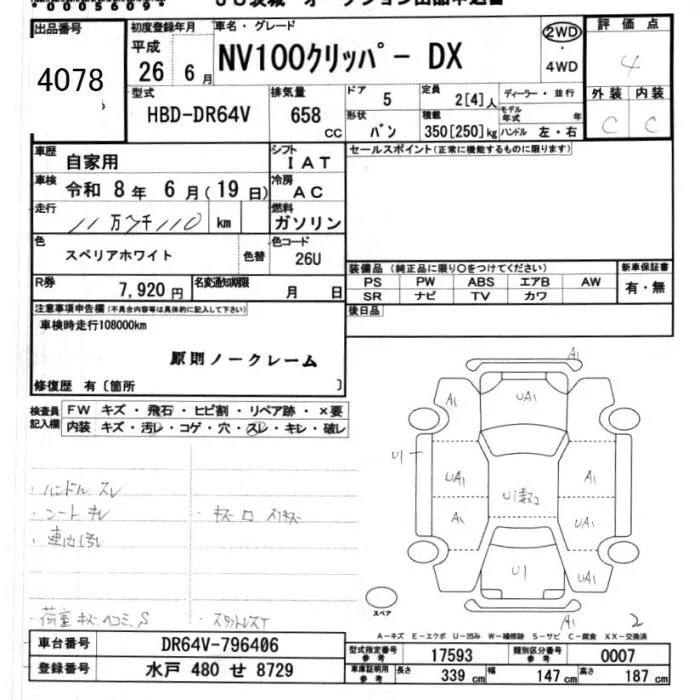 *00056094*
出品番号
4078
初度登録年月
平成
26 6月
車名・グレード
NV100クリッパー DX
2WD
・
4WD
評価点
4
型式
HBD-DR64V
排気量
658
CC
ドア
5
形状
バン
定員
2[4]人
積載
350[250]kg
ディーラー・並行
モデル年式
年
ハンドル 左・右
外装 内装
C C
車歴
自家用
シフト
IAT
セールスポイント(正常に機能するものに限ります)
車検
令和 8年 6月(19日)
冷房
AC
走行
km
燃料
ガソリン
色
スペリアホワイト
色替
色コード
26U
R券
7,920円
名変通知期限
月 日
装備品(純正品に限り○をつけてください)
PS PW ABS エアB AW
SR ナビ TV カワ
新車保証書
有・無
後日品
注意事項申告欄(不具合内容等は具体的に記入して下さい)
車検時走行108000km
原則ノークレーム
修復歴 有〔箇所 〕
検査員
記入欄
FW キズ・飛石・ヒビ割・リペア跡・×要
内装 キズ・汚レ・コゲ・穴・スレ・キレ・破レ
・ハンドル スレ
・シート キレ
・車内汚レ
A1
A1
UA1
A1
U1
UA1
A1
A1
UA1
U1
UA1
A1
2
スペア
A-キズ E-エクボ U-凹み W-補修跡 S-サビ C-腐食 XX-交換済
車台番号
DR64V-796406
登録番号
水戸 480 せ 8729
型式指定番号
参考
17593
類別区分番号
参考
0007
車庫証明用
参考
長さ
339 cm
幅
147 cm
高さ
187 cm